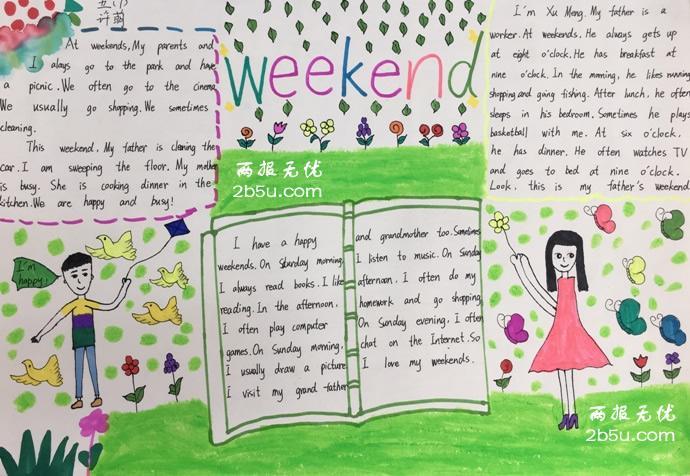 五(1)
许萌
At weekends, My parents and
I alays go to the park and have
a picnic. We often go to the cinema
We usually go shopping. We sometimes
cleaning.
This weekend, My father is clering the
car. I am sweeping the floor. My mother
is busy. She is cooking dinner in the
kitchen. We are happy and busy!
weekend
两报无优
2b5u.com
I'm Xu Meng. My father is a
worker. At weekends. He always gets up
at eight o'clock. He has breakfast at
nine o'clock. In the morning, he likes running
shopping and going fishing. After lunch, he often
sleeps in his bedroom. Sometimes he plays
basketball with me. At six o'clock.
he has dinner. He often watches TV
and goes to bed at nine o'clock.
Look, this is my father's weekend
I'm
happy!
I have a happy
weekends. On Sturday morning,
I always read books. I like
reading. In the afternoon.
I often play computer
games. On Sunday morning.
I usually draw a picture
I visit my grand father
and grandmother too. Sometimes
I listen to music. On Sunday
afternoon. I often do my
homework and go shopping
On Sunday evening. I often
chat on the Internet. So
I love my weekends.
两报无优
2b5u.com